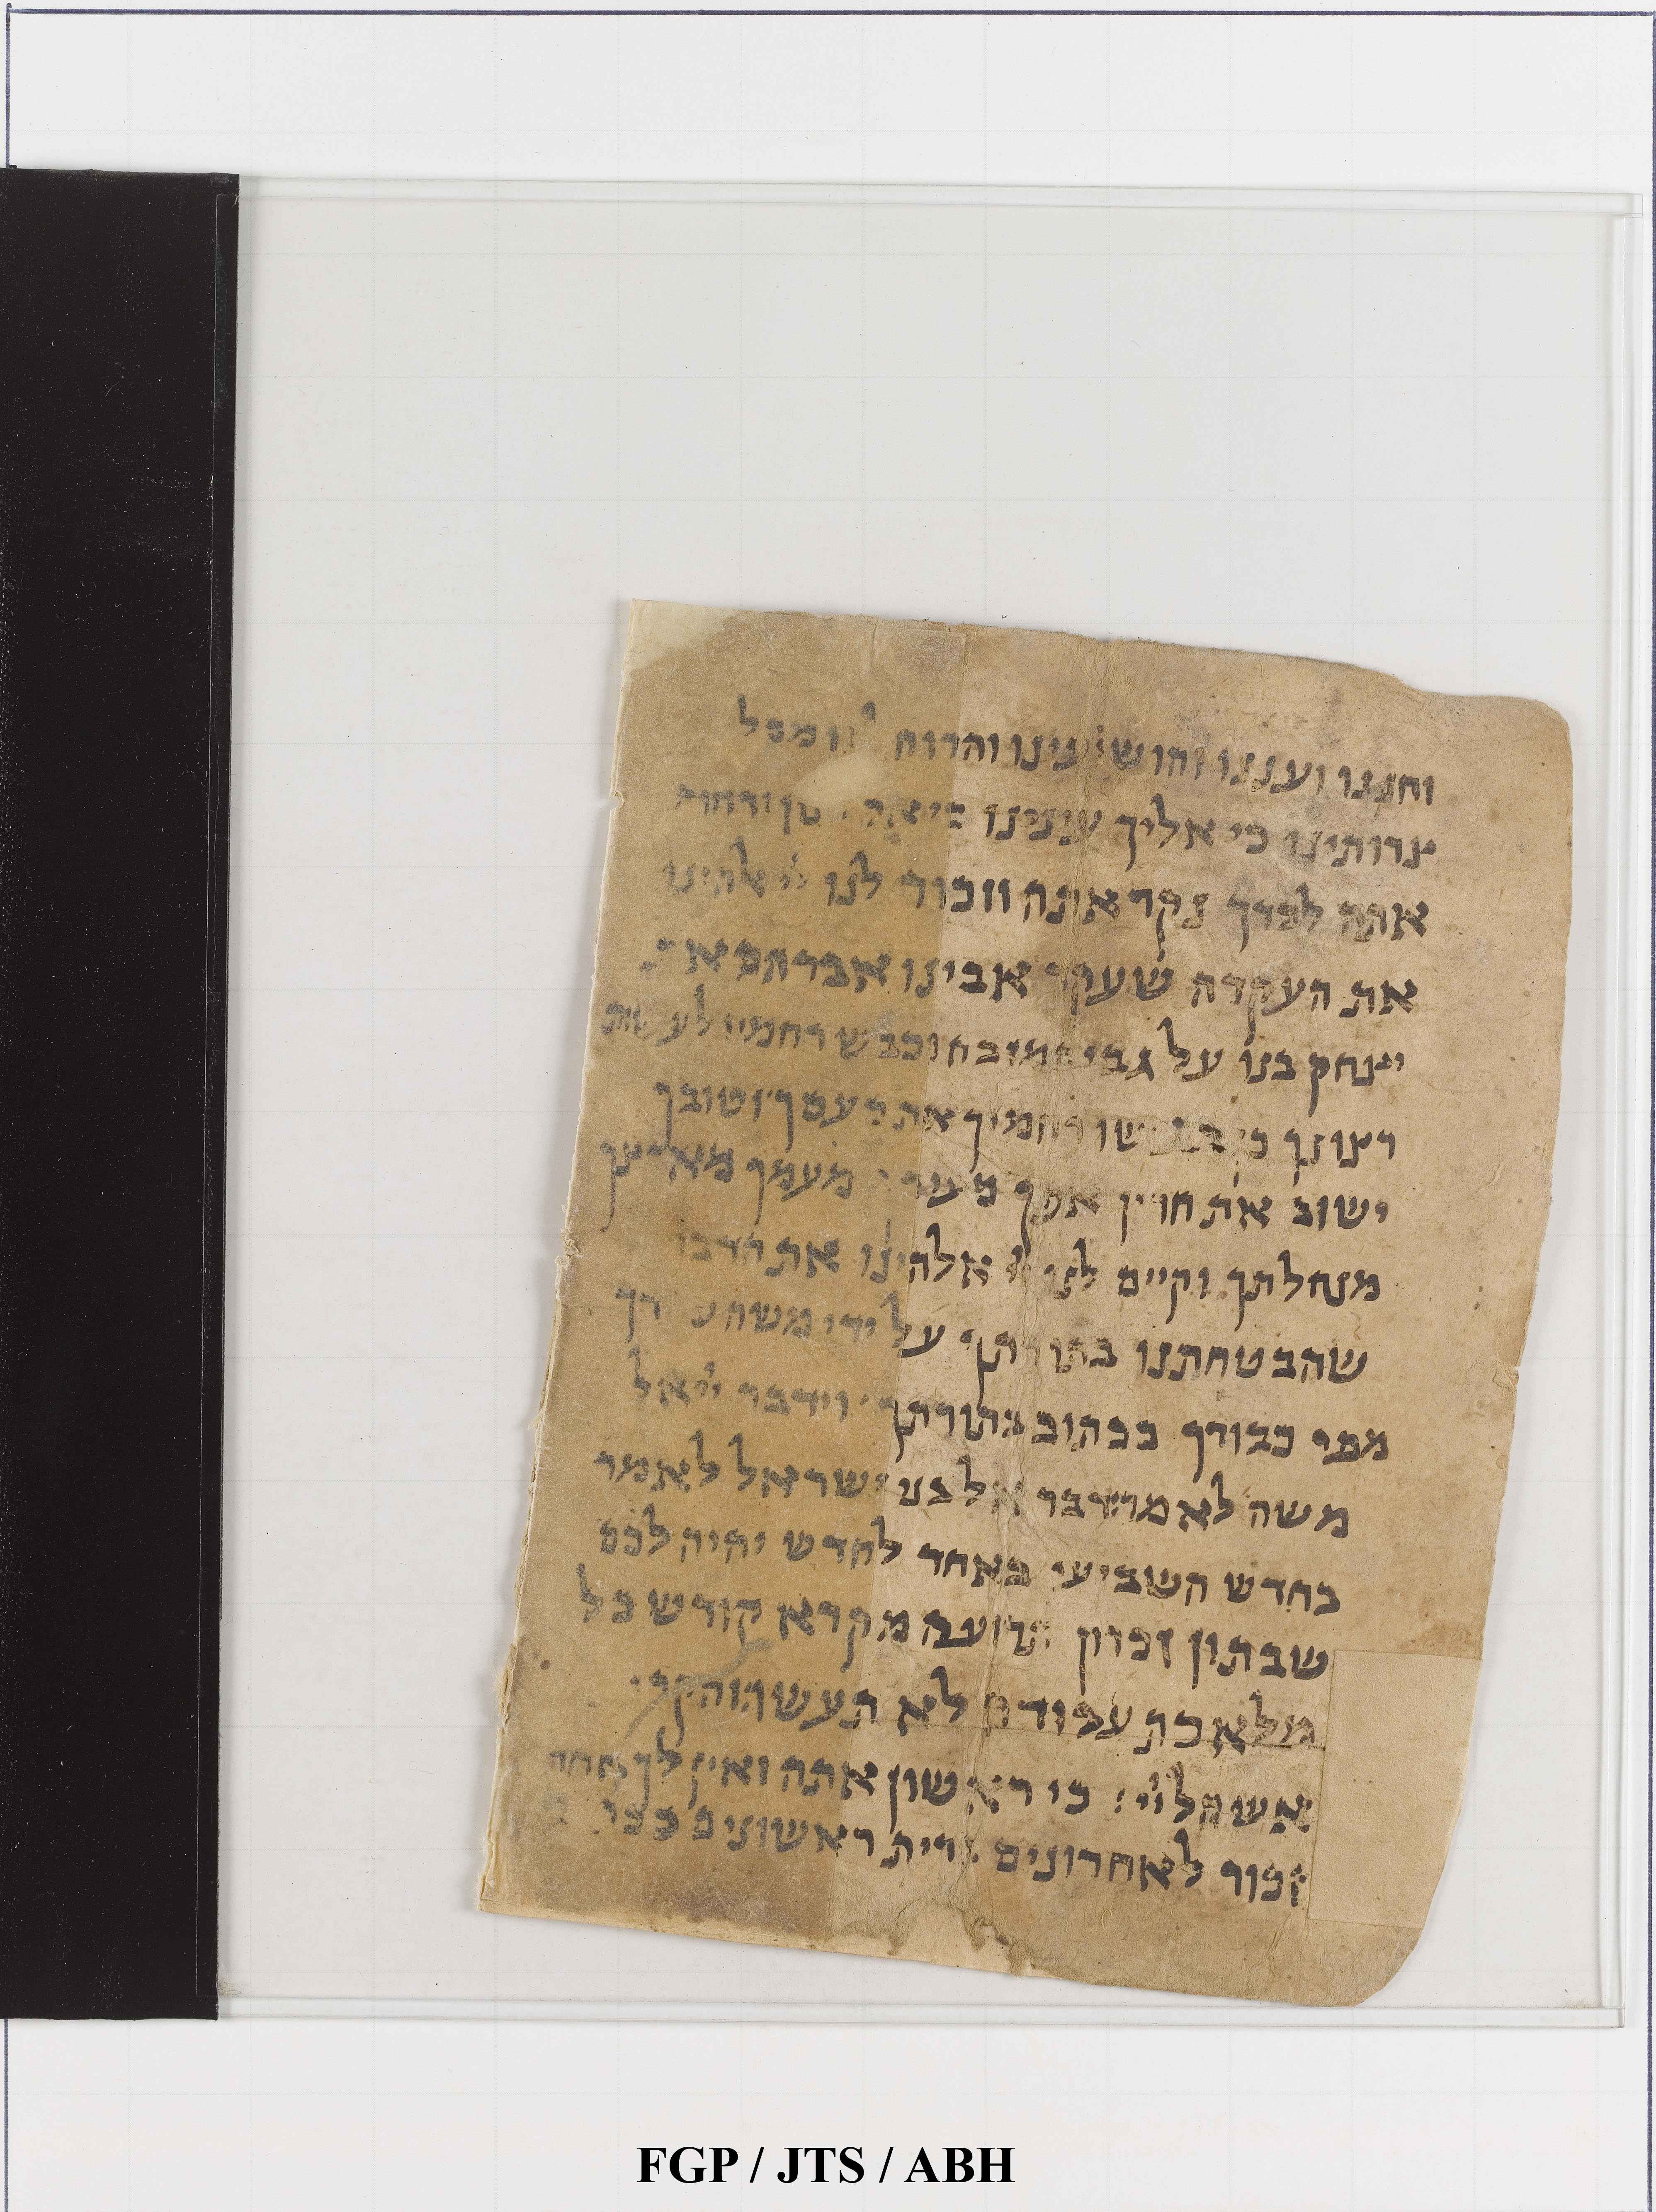 וחננו ועננו והושיעינו והרוח לנו מכל
צרותינו כי אליך עינינו כי אל חנון ורחום
אתה לבדך נקראתה וזכור לנו יי אלהינו
את העקדה שעקד אבינו אברהם את
יצחק בנו על גבי המזבח וכבש רחמיו לעשות
רצונך כן יכבשו רחמיך את כעסך וטובך
ישוב את חרון אפך מעיר מעמך מארצך
מנחלתך וקיים לנו יי אלהינו את הדבר
שהבטחתנו בתורתך על ידי משה עבדך
מפי כבודך ככתוב בתורתך וידבר יי אל
משה לאמר דבר אל בני ישראל לאמר
בחדש השביעי באחד לחדש יהיה לכם
שבתון זכרון תרועה מקרא קודש כל
מלאכת עבודה לא תעשו והקר
אשה ליי כי ראשון אתה ואין לך אחר
זכור לאחרונים ברית ראשונים ככ
FGP / JTS / ABH